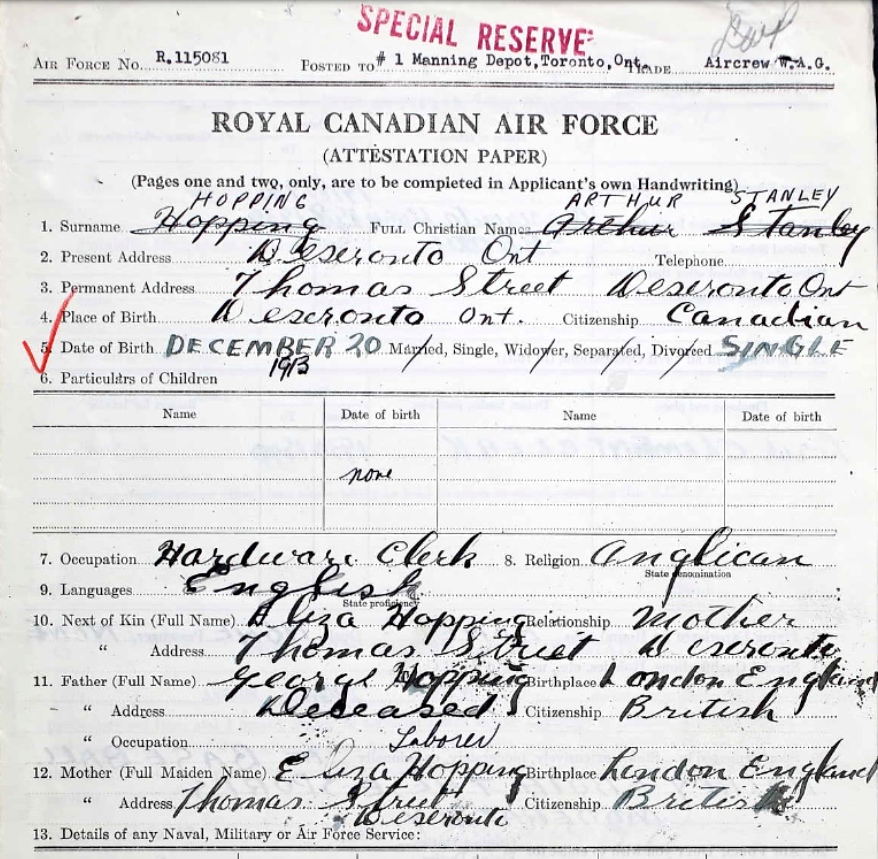 SPECIAL RESERVE
AIR FORCE NO. R.115081 POSTED TO # 1 Manning Depot, Toronto, Ont. TRADE Aircrew W.A.G.
ROYAL CANADIAN AIR FORCE
(ATTESTATION PAPER)
(Pages one and two, only, are to be completed in Applicant's own Handwriting)
HOPPING ARTHUR STANLEY
1. Surname Hopping FULL Christian Names Arthur Stanley
2. Present Address Deseronto Ont Telephone
3. Permanent Address Thomas Street Deseronto Ont
4. Place of Birth Deseronto Ont. Citizenship Canadian
5. Date of Birth DECEMBER 20 Married, Single, Widower, Separated, Divorced SINGLE
1913
6. Particulars of Children
Name Date of birth Name Date of birth
none
7. Occupation Hardware Clerk 8. Religion Anglican
State denomination
9. Languages English
State proficiency
10. Next of Kin (Full Name) Eliza Hopping Relationship Mother
" Address Thomas Street Deseronto
11. Father (Full Name) George Hopping Birthplace London England
" Address Deseased Citizenship British
" Occupation Laborer
12. Mother (Full Maiden Name) Eliza Hopping Birthplace London England
" Address Thomas Street Citizenship British
Deseronto
13. Details of any Naval, Military or Air Force Service: